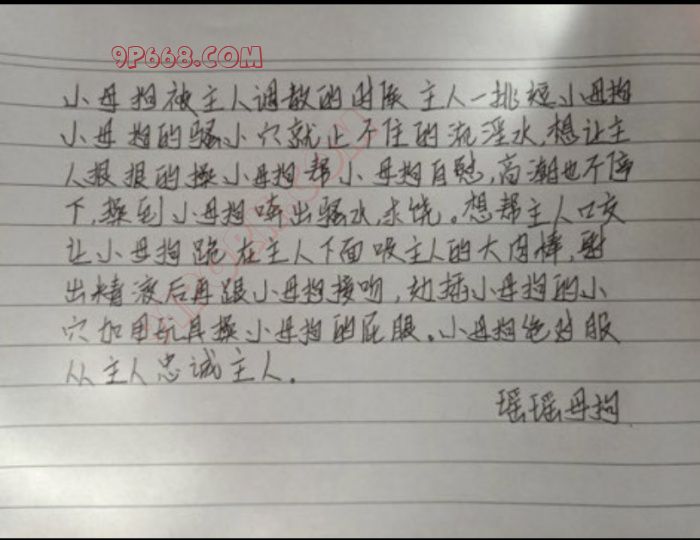 9P668.COM
小母狗被主人调教的时候主人一挑逗小母狗
小母狗的骚小穴就止不住的流淫水,想让主
人狠狠的操小母狗帮小母狗自慰,高潮也不停
下,操到小母狗喷出骚水,求饶。想帮主人口交
让小母狗跪在主人下面吸主人的大肉棒,射
出精液后再跟小母狗接吻,边插小母狗的小
穴加用玩具操小母狗的屁眼。小母狗绝对服
从主人忠诚主人.
瑶瑶母狗